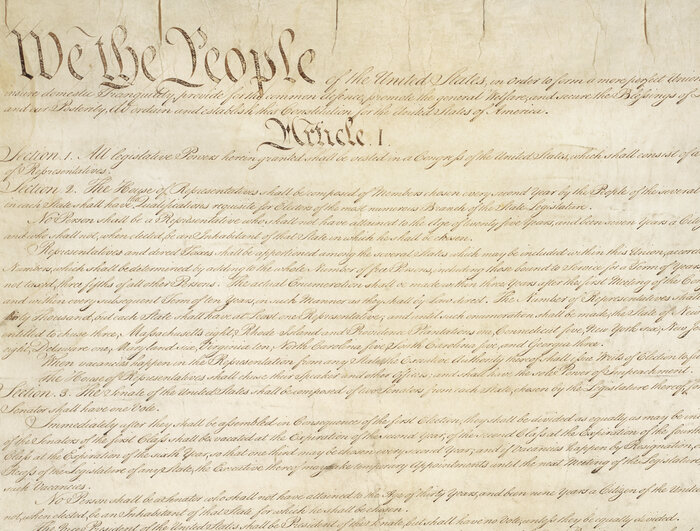 We the People of the United States, in Order to form a more perfect Union
insure domestic Tranquility, provide for the common defence, promote the general Welfare, and secure the Blessings of L
and our Posterity, do ordain and establish this Constitution for the United States of America.
Article. I.
Section. 1. All legislative Powers herein granted shall be vested in a Congress of the United States, which shall consist of a
of Representatives.
Section. 2. The House of Representatives shall be composed of Members chosen every second Year by the People of the several
in each State shall have the Qualifications requisite for Electors of the most numerous Branch of the State Legislature.
No Person shall be a Representative who shall not have attained to the Age of twenty five Years, and been seven Years a Citizen
and who shall not, when elected, be an Inhabitant of that State in which he shall be chosen.
Representatives and direct Taxes shall be apportioned among the several States which may be included within this Union, accord
Numbers, which shall be determined by adding to the whole Number of free Persons, including those bound to Service for a Term of Years
not taxed, three fifths of all other Persons. The actual Enumeration shall be made within three Years after the first Meeting of the Cong
and within every subsequent Term of ten Years, in such Manner as they shall by Law direct. The Number of Representatives sha
thirty Thousand, but each State shall have at Least one Representative; and until such enumeration shall be made, the State of New
entitled to chuse three, Massachusetts eight, Rhode Island and Providence Plantations one, Connecticut five, New York six, New
eight, Delaware one, Maryland six, Virginia ten, North Carolina five, South Carolina five, and Georgia three.
When vacancies happen in the Representation from any State, the Executive Authority thereof shall issue Writs of Election to fi
The House of Representatives shall chuse their Speaker and other Officers; and shall have the sole Power of Impeachment.
Section. 3. The Senate of the United States shall be composed of two Senators from each State, chosen by the Legislature thereof,
Senator shall have one Vote.
Immediately after they shall be assembled in Consequence of the first Election, they shall be divided as equally as may be in
of the Senators of the first Class shall be vacated at the Expiration of the second Year, of the second Class at the Expiration of the fourth
Class at the Expiration of the sixth Year, so that one third may be chosen every second Year; and if Vacancies happen by Resignation, o
Recess of the Legislature of any State, the Executive thereof may make temporary Appointments until the next Meeting of the Legislatur
such Vacancies.
No Person shall be a Senator who shall not have attained to the Age of thirty Years, and been nine Years a Citizen of the Unit
not, when elected, be an Inhabitant of that State for which he shall be chosen.
The Vice President of the United States shall be President of the Senate, but shall have no Vote, unless they be equally divided.